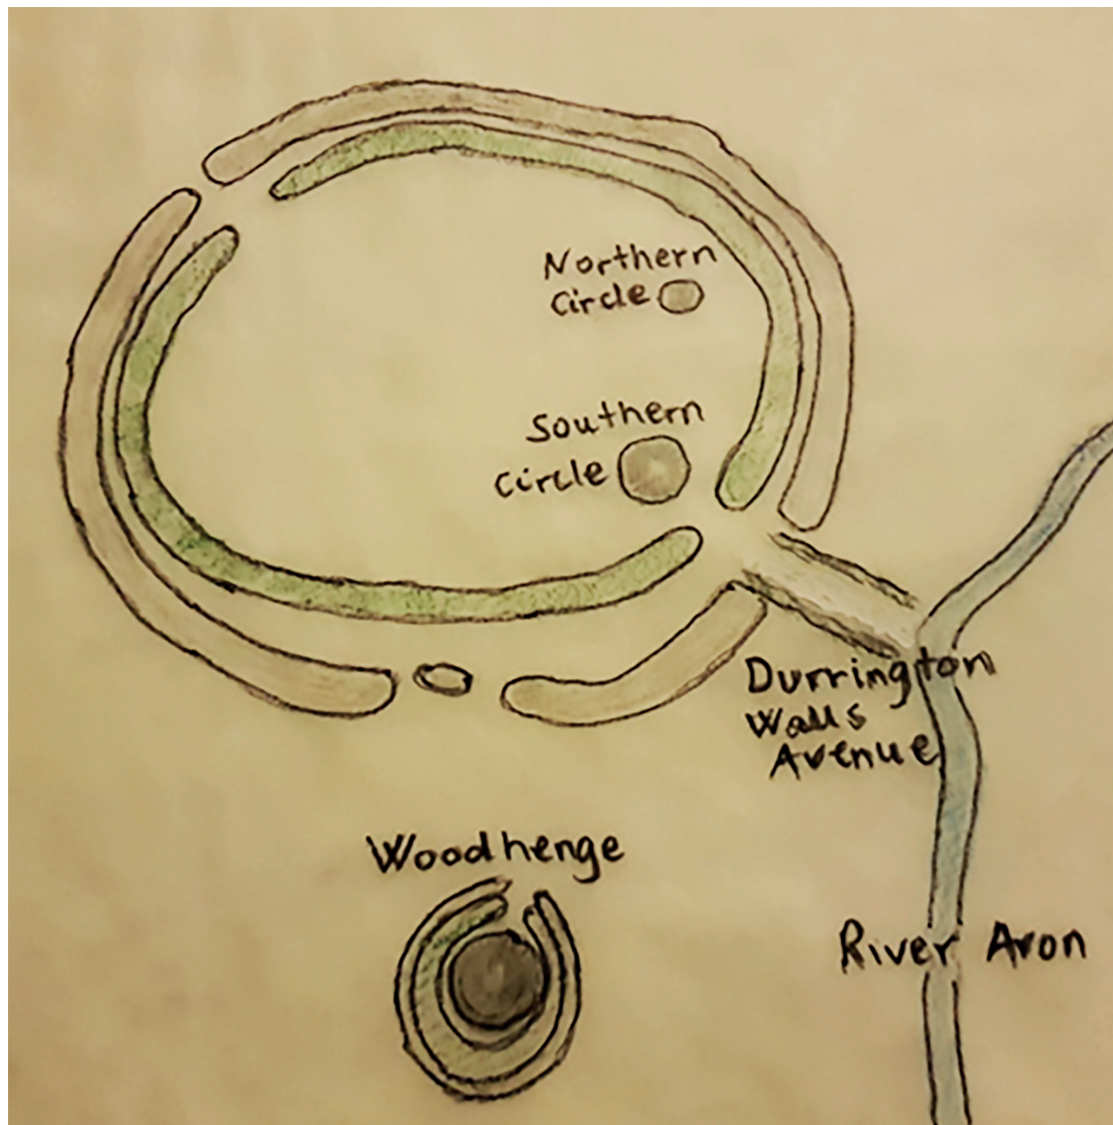 Northern
Circle
Southern
Circle
Durrington
Walls
Avenue
Woodhenge
River Avon